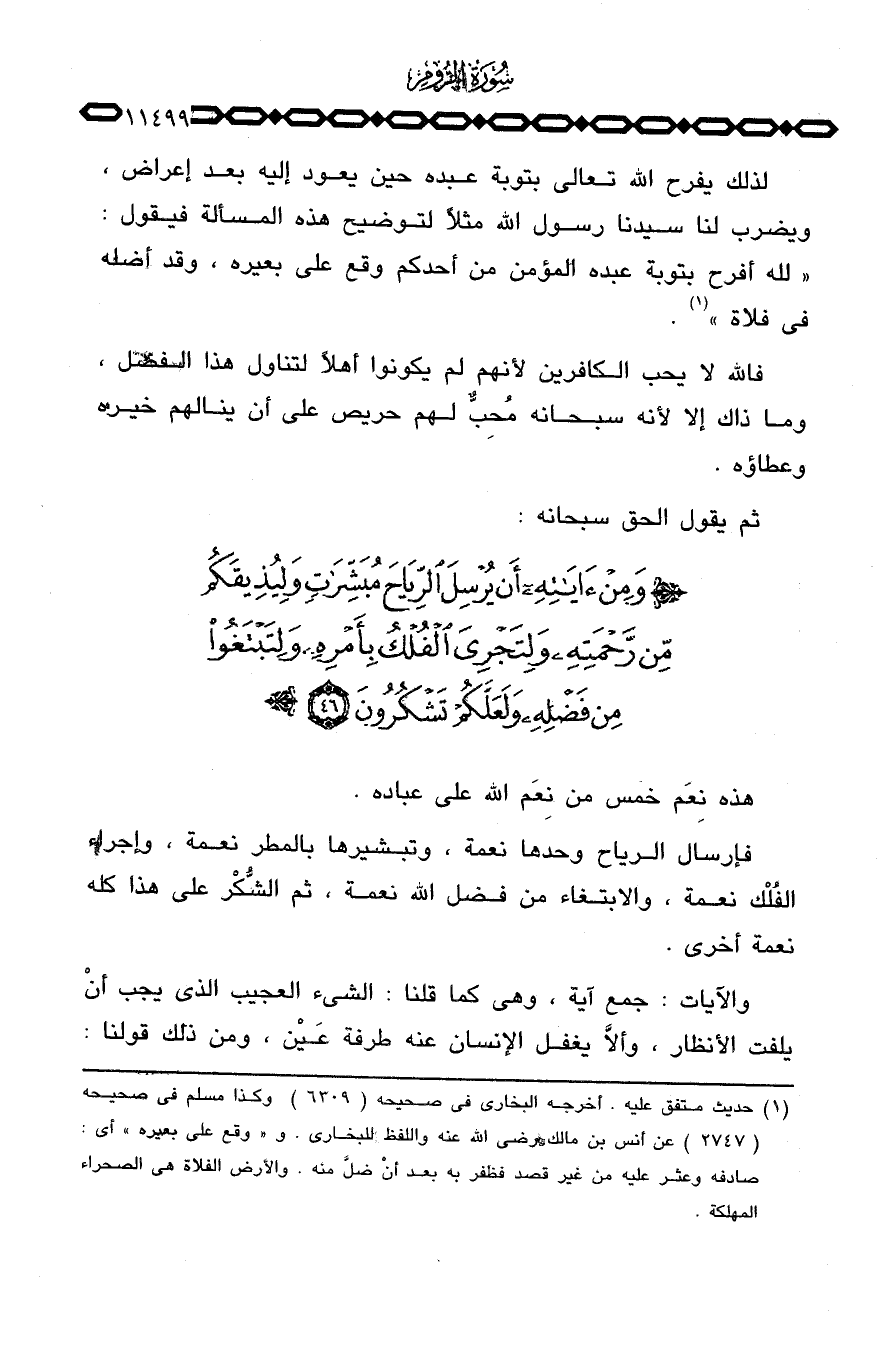 سُورَةُ الرُّومِ
١١٤٩٩
لذلك يفرح الله تعالى بتوبة عبده حين يعود إليه بعد إعراض ،
ويضرب لنا سيدنا رسول الله مثلاً لتوضيح هذه المسألة فيقول :
« لله أفرح بتوبة عبده المؤمن من أحدكم وقع على بعيره ، وقد أضله
فى فلاة »(١) .
فالله لا يحب الكافرين لأنهم لم يكونوا أهلاً لتناول هذا الفضل ،
وما ذاك إلا لأنه سبحانه مُحِبٌّ لهم حريص على أن ينالهم خيره
وعطاؤه .
ثم يقول الحق سبحانه :
﴿ وَمِنْ ءَايَٰتِهِۦٓ أَن يُرْسِلَ ٱلرِّيَاحَ مُبَشِّرَٰتٍ وَلِيُذِيقَكُم
مِّن رَّحْمَتِهِۦ وَلِتَجْرِىَ ٱلْفُلْكُ بِأَمْرِهِۦ وَلِتَبْتَغُوا۟
مِن فَضْلِهِۦ وَلَعَلَّكُمْ تَشْكُرُونَ ٤٦ ﴾
هذه نِعَم خمس من نِعَم الله على عباده .
فإرسال الرياح وحدها نعمة ، وتبشيرها بالمطر نعمة ، وإجراء
الفُلْك نعمة ، والابتغاء من فضل الله نعمة ، ثم الشُّكْر على هذا كله
نعمة أخرى .
والآيات : جمع آية ، وهى كما قلنا : الشىء العجيب الذى يجب أنْ
يلفت الأنظار ، وألاَّ يغفل الإنسان عنه طرفة عَيْن ، ومن ذلك قولنا :
(١) حديث متفق عليه . أخرجه البخارى فى صحيحه ( ٦٣٠٩ ) وكذا مسلم فى صحيحه
( ٢٧٤٧ ) عن أنس بن مالك رضى الله عنه واللفظ للبخارى . و « وقع على بعيره » أى :
صادفه وعثر عليه من غير قصد فظفر به بعد أنْ ضلَّ منه . والأرض الفلاة هى الصحراء
المهلكة .